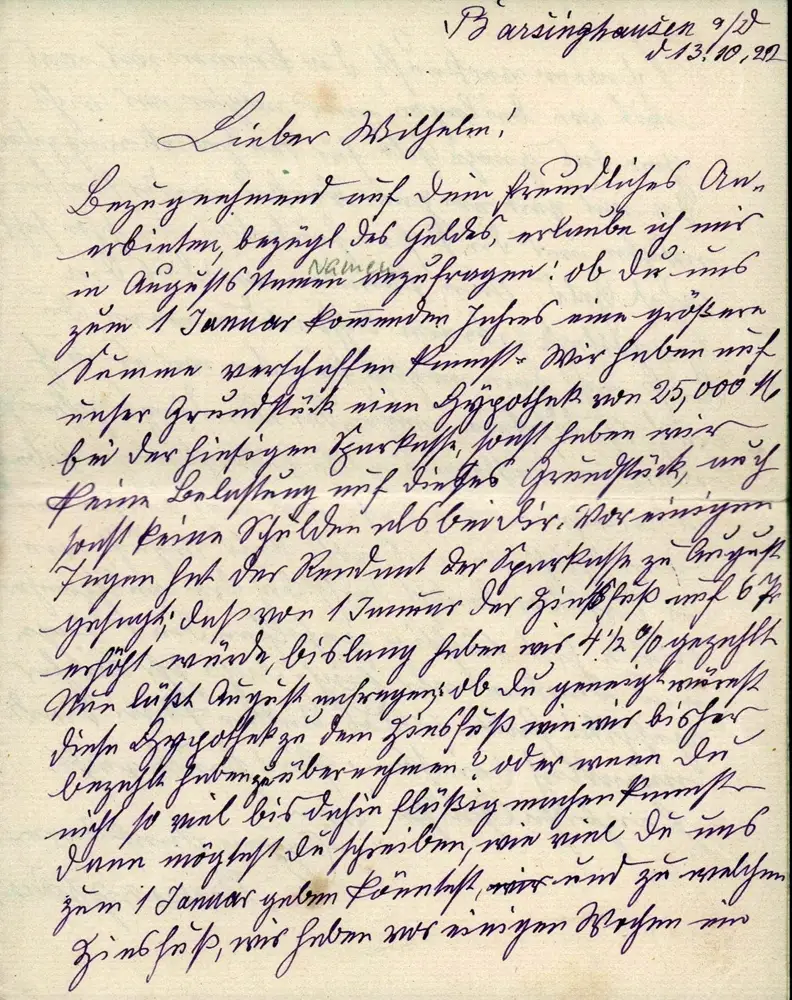 Barsinghausen a/D
d 13.10.22
Lieber Wilhelm!
Bezugnehmend auf dein freundliches An-
erbieten, bezügl des Geldes, erlaube ich mir
Namen
in Augusts Namen anzufragen: ob du uns
zum 1 Januar kommenden Jahres eine größere
Summe verschaffen kannst. Wir haben auf
unser Grundstück eine Hypothek von 25,000 M
bei der hiesigen Sparkasse, sonst haben wir
keine Belastung auf dieses Grundstück, auch
sonst keine Schulden als bei dir. Vor einigen
Tagen hat der Rendant der Sparkasse zu August
gesagt; daß von 1 Januar der Zinsfuß auf 6 Pr
erhöht würde, bislang haben wir 4 ½ % gezahlt
Nun läßt August anfragen: ob du geneigt wärest
diese Hypothek zu dem Zinsfuß wie wir bisher
bezahlt haben zu übernehmen? oder wenn du
nicht so viel bis dahin flüßig machen kannst
dann mögtest du schreiben, wie viel du uns
zum 1 Januar geben könntest, wir und zu welchem
Zinsfuß, wir haben vor einigen Wochen ein